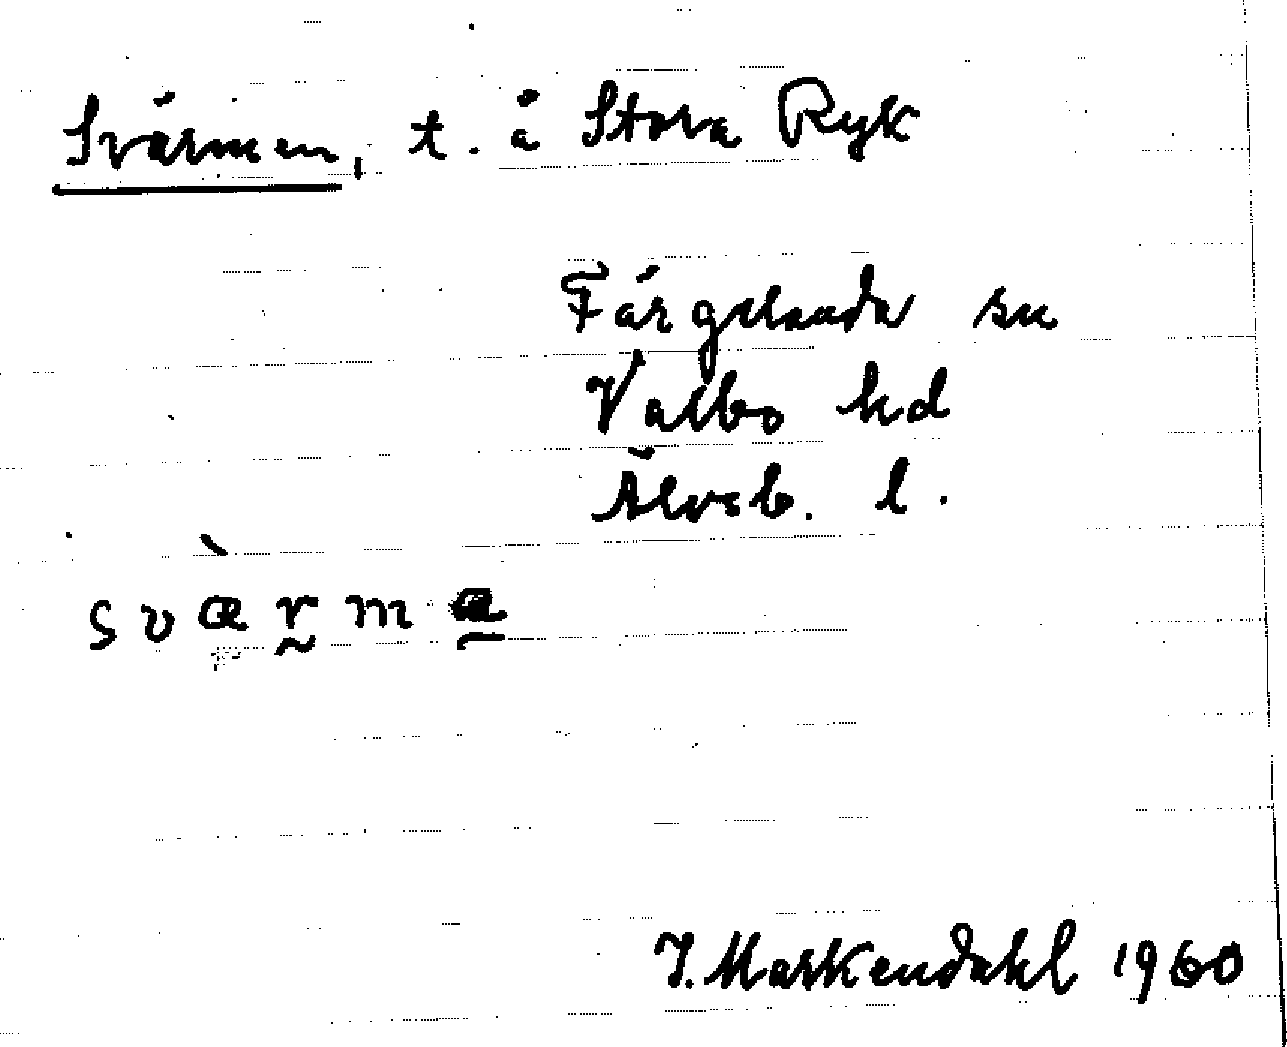 Svärmen, t. å Stora Ryk
Färgelanda sn
Valbo hd
Älvsb. l.
svæ̀r̰mæ̱
J. Markendahl 1960